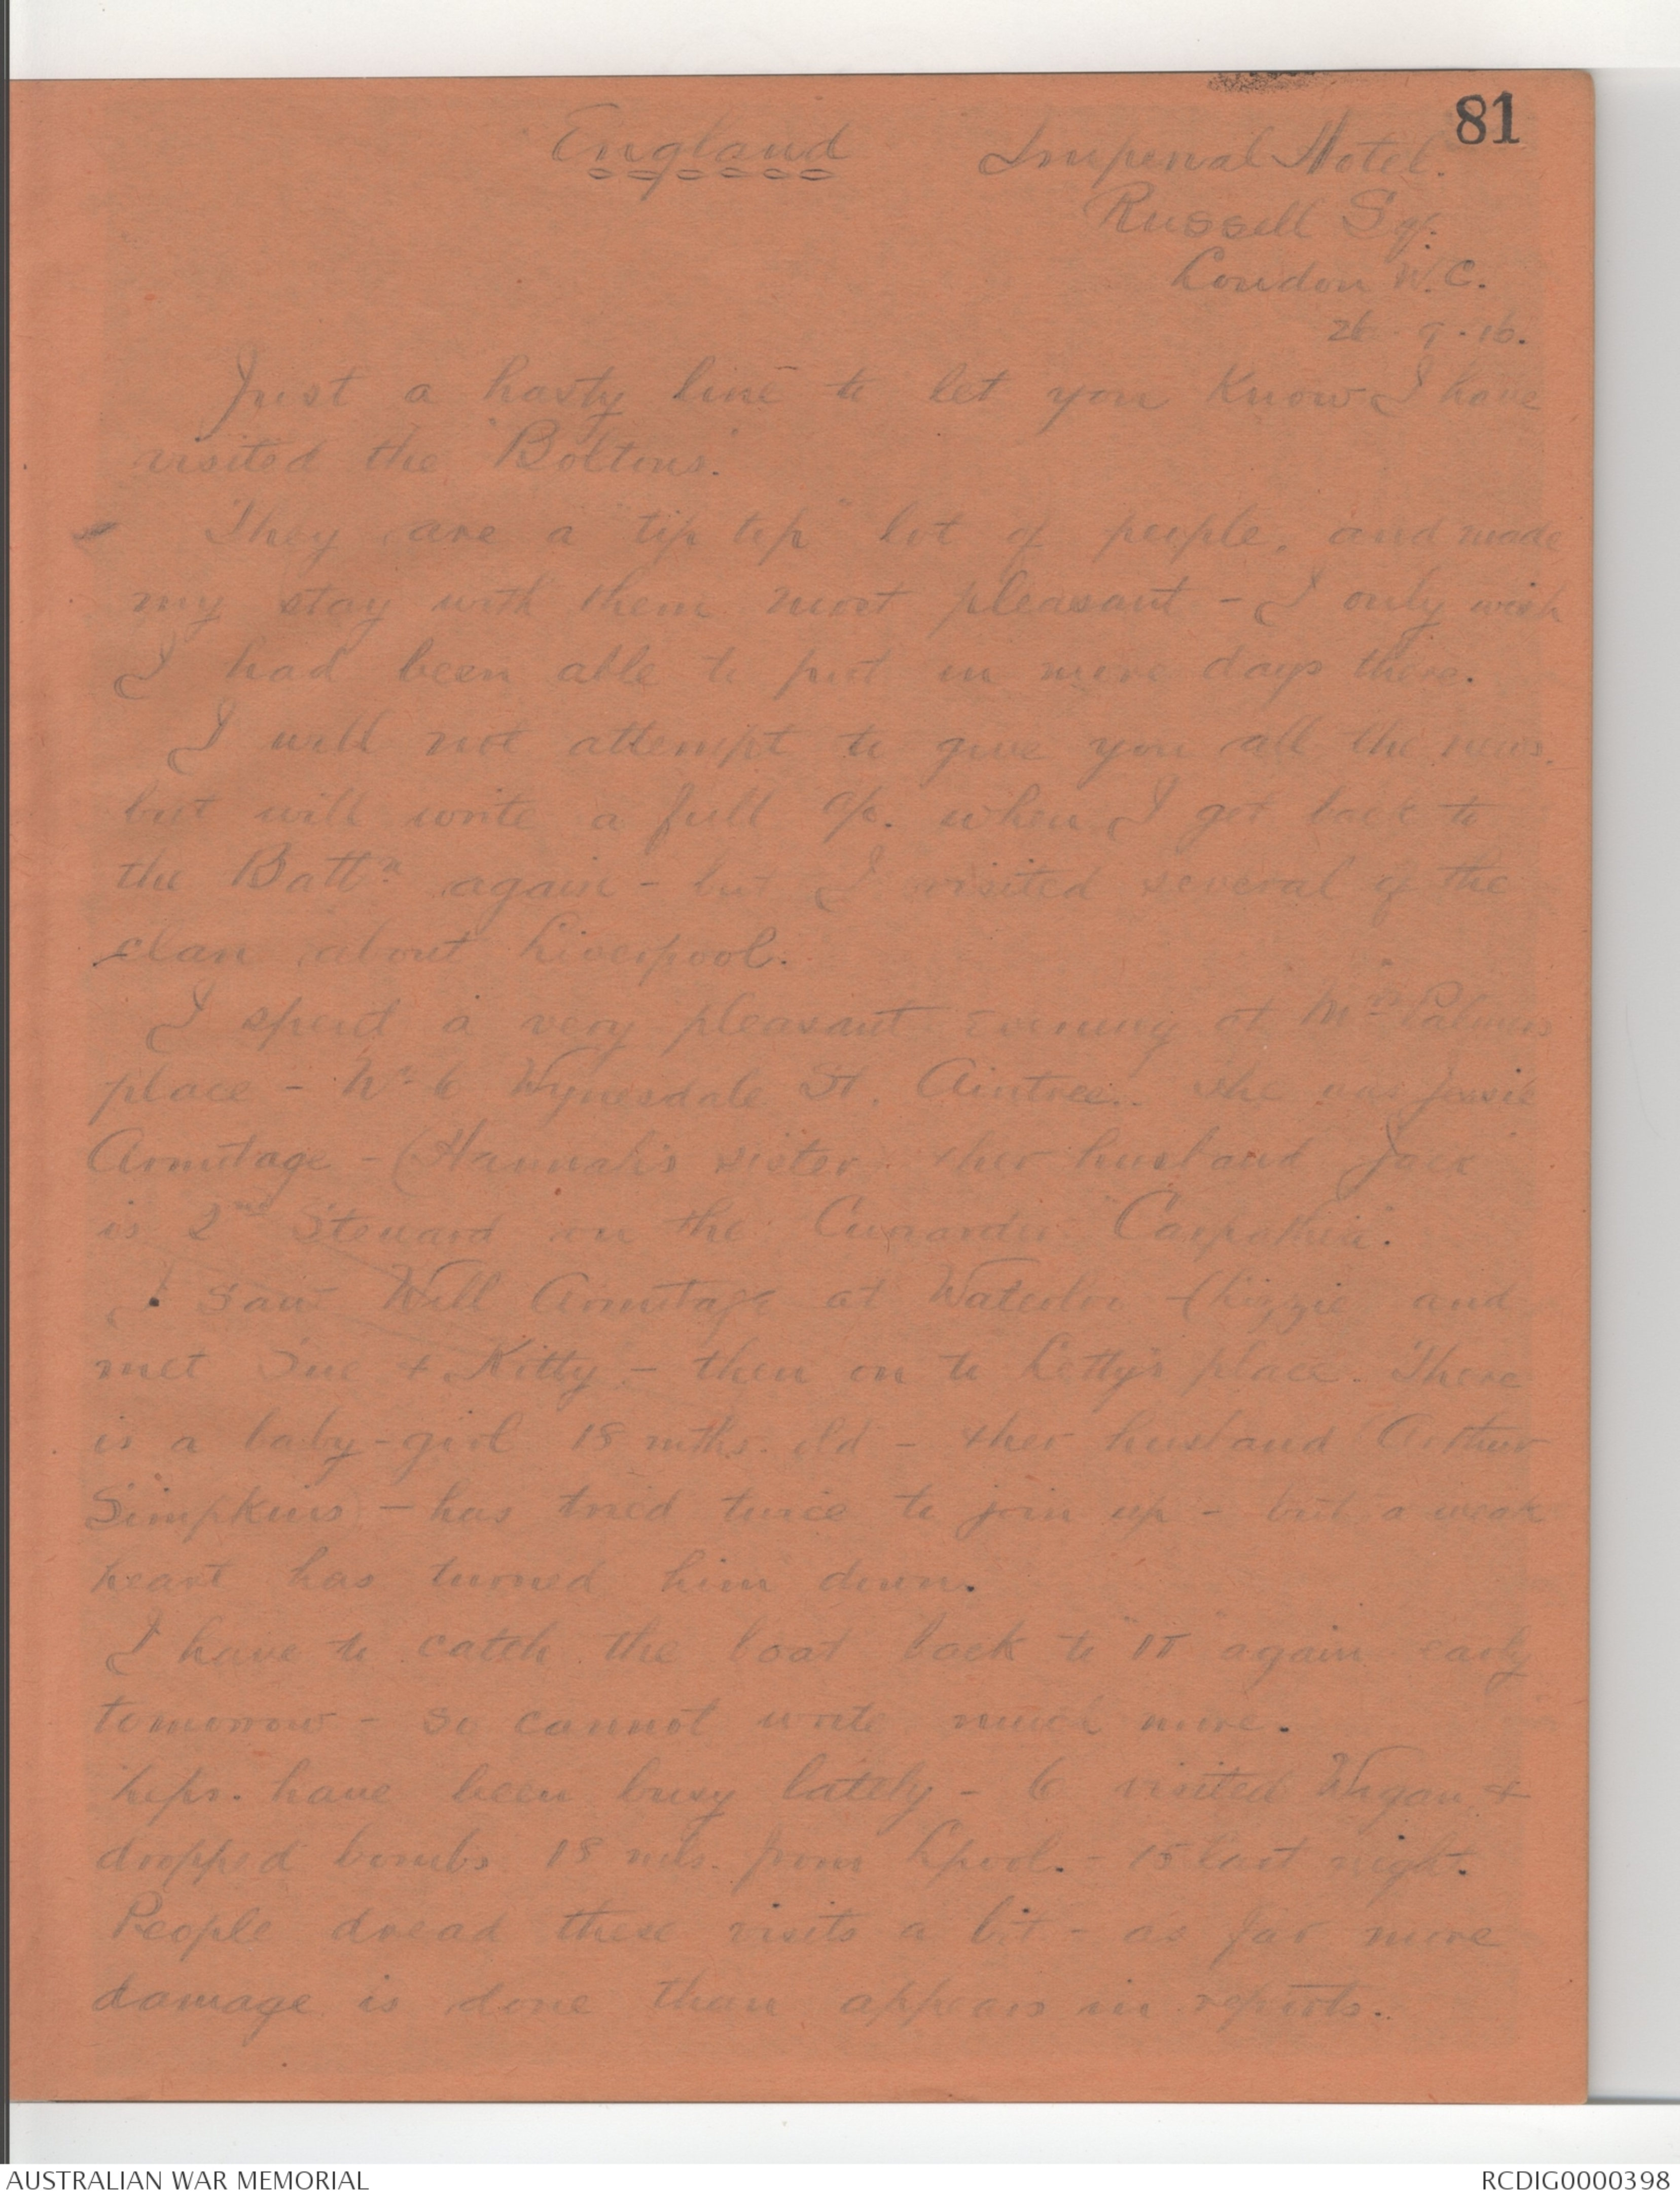 81
England
Imperial Hotel.
Russell Sq.
London W.C.
26. 9. 16.
Just a hasty line to let you know I have
visited the "Boltons".
They are a "tip top" lot of people, and made
my stay with them most pleasant - I only wish
I had been able to put in more days there.
I will not attempt to give you all the news,
but will write a full a/c. when I get back to
the Battn again - but I visited several of the
clan about Liverpool.
I spend a very pleasant Evening at Mrs Palmers
place - No 6 Wynesdale St. Aintree. She was Jessie
Armitage - (Hannah's sister) & her husband Jack
is 2nd Steward on the Cunarder "Carpathia".
I saw Will Armitage at Waterloo - (Lizzie and
met Sue & Kitty - then on to Letty's place. There
is a baby-girl 18 mths. old - & her husband (Arthur
Simpkins) - has tried twice to join up - but a weak
heart has turned him down.
I have to catch the boat back to "IT" again early
tomorrow - so cannot write much more.
have been busy lately - 6 visited Wigan &
dropped bombs 18 mls. from Lpool. - 15 last night.
People dread these visits a bit - as far more
damage is done than appears in reports.
AUSTRALIAN WAR MEMORIAL
RCDIG0000398